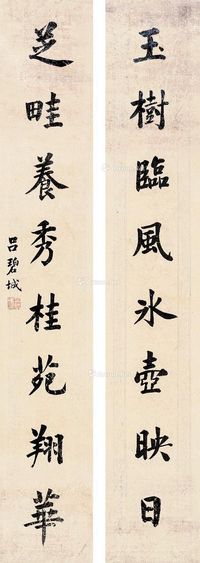 玉樹臨風冰壺映日
芝畦養秀桂苑翔華
呂碧城